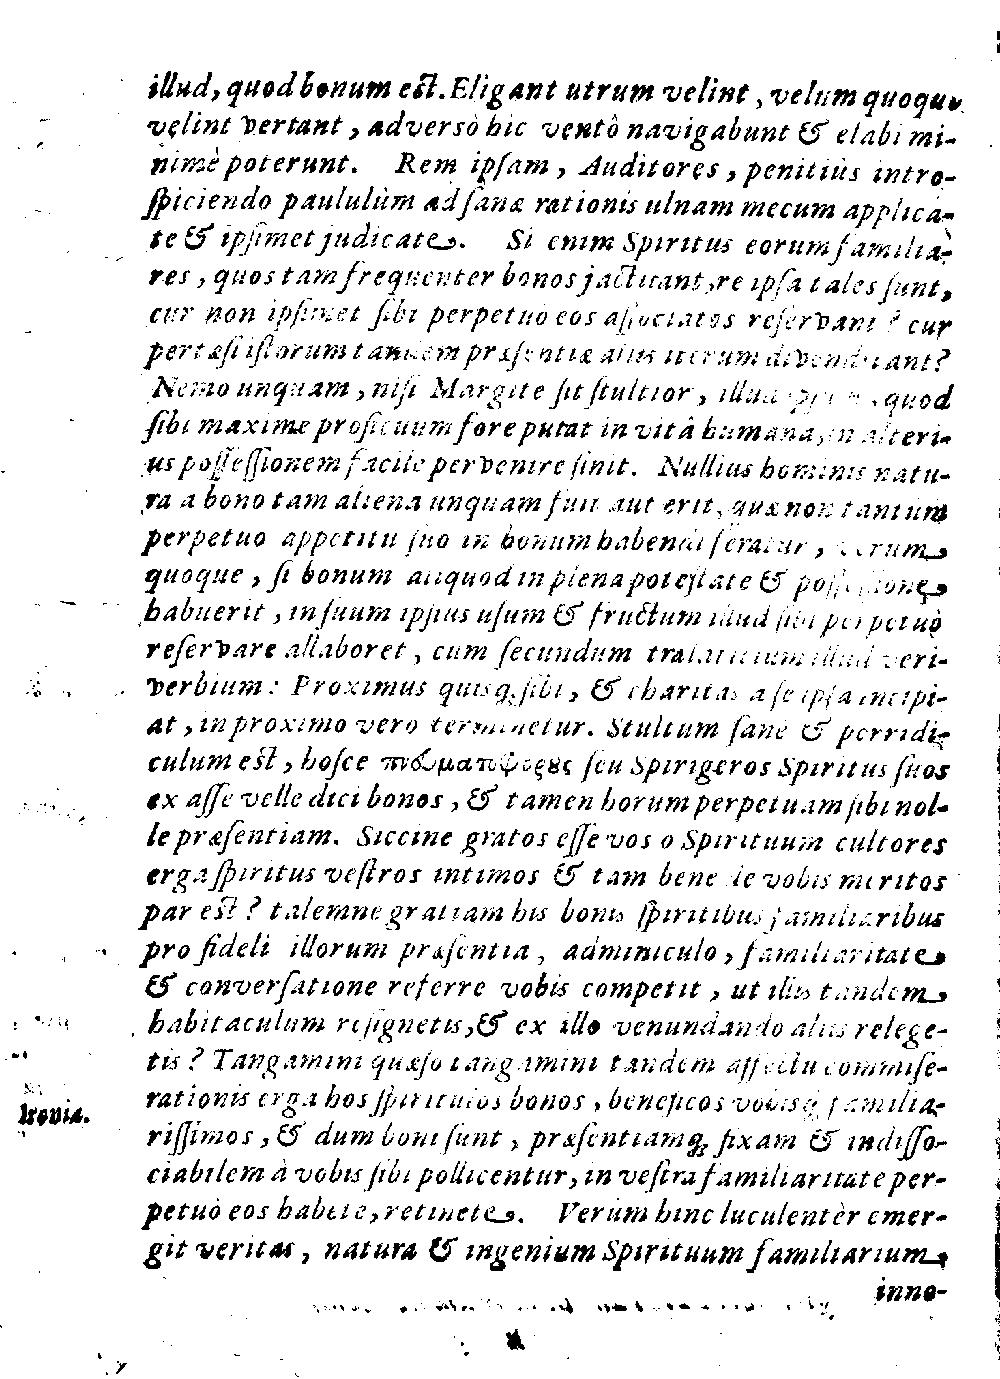 illud, quod bonum est. Eligant utrum velint, velum quoque
velint vertant, adversò hic ventô navigabunt & elabi mi-
nimè poterunt. Rem ipsam, Auditores, penitiùs intro-
ſpiciendo paululùm ad ſanæ rationis ulnam mecum applica-
te & ipſimet judicate. Si enim Spiritus eorum familia-
res, quos tam frequenter bonos jactitant, re ipſa tales ſunt,
cur non ipſimet ſibi perpetuò eos aſſociatos reſervant? cur
pertæſi iſtorum tandem præſentiæ aliis iterum divenditant?
Nemo unquam, niſi Margite ſit ſtultior, illud quod
ſibi maximè proficuum fore putat in vitâ humana, in alteri-
us poſſeſſionem facile pervenire ſinit. Nullius hominis natu-
ra a bono tam aliena unquam fuit aut erit, quæ non tantùm
perpetuo appetitu ſuo in bonum habendi feratur, verum
quoque, ſi bonum aliquod in plena poteſtate & poſſeſſione
habuerit, in ſuum ipſius uſum & fructum illud ſibi perpetuò
reſervare allaboret, cum ſecundum tralatitium illud veri-
verbium: Proximus quisq; ſibi, & charitas a ſe ipſa incipi-
at, in proximo vero terminetur. Stultum ſanè & perridi-
culum eſt, hoſce seu Spirigeros Spiritus ſuos
ex aſſe velle dici bonos, & tamen horum perpetuam ſibi nol-
le præſentiam. Siccine gratos eſſe vos o Spirituum cultores
erga ſpiritus veſtros intimos & tam bene de vobis meritos
par eſt? talemne gratiam his bonis ſpiritibus familiaribus
pro fideli illorum præſentia, adminiculo, familiaritate
& converſatione referre vobis competit, ut illis tandem
habitaculum reſignetis, & ex illo venundando aliis relege-
tis? Tangamini quæſo tangamini tandem affectu commiſe-
rationis erga hos ſpiritulos bonos, beneficos vobisq; familia-
riſſimos, & dum boni ſunt, præſentiamq; fixam & indiſſo-
ciabilem à vobis ſibi pollicentur, in veſtra familiaritate per-
petuò eos habete, retinete. Verum hinc luculentèr emer-
git veritas, natura & ingenium Spirituum familiarium
inno-
Ironia.